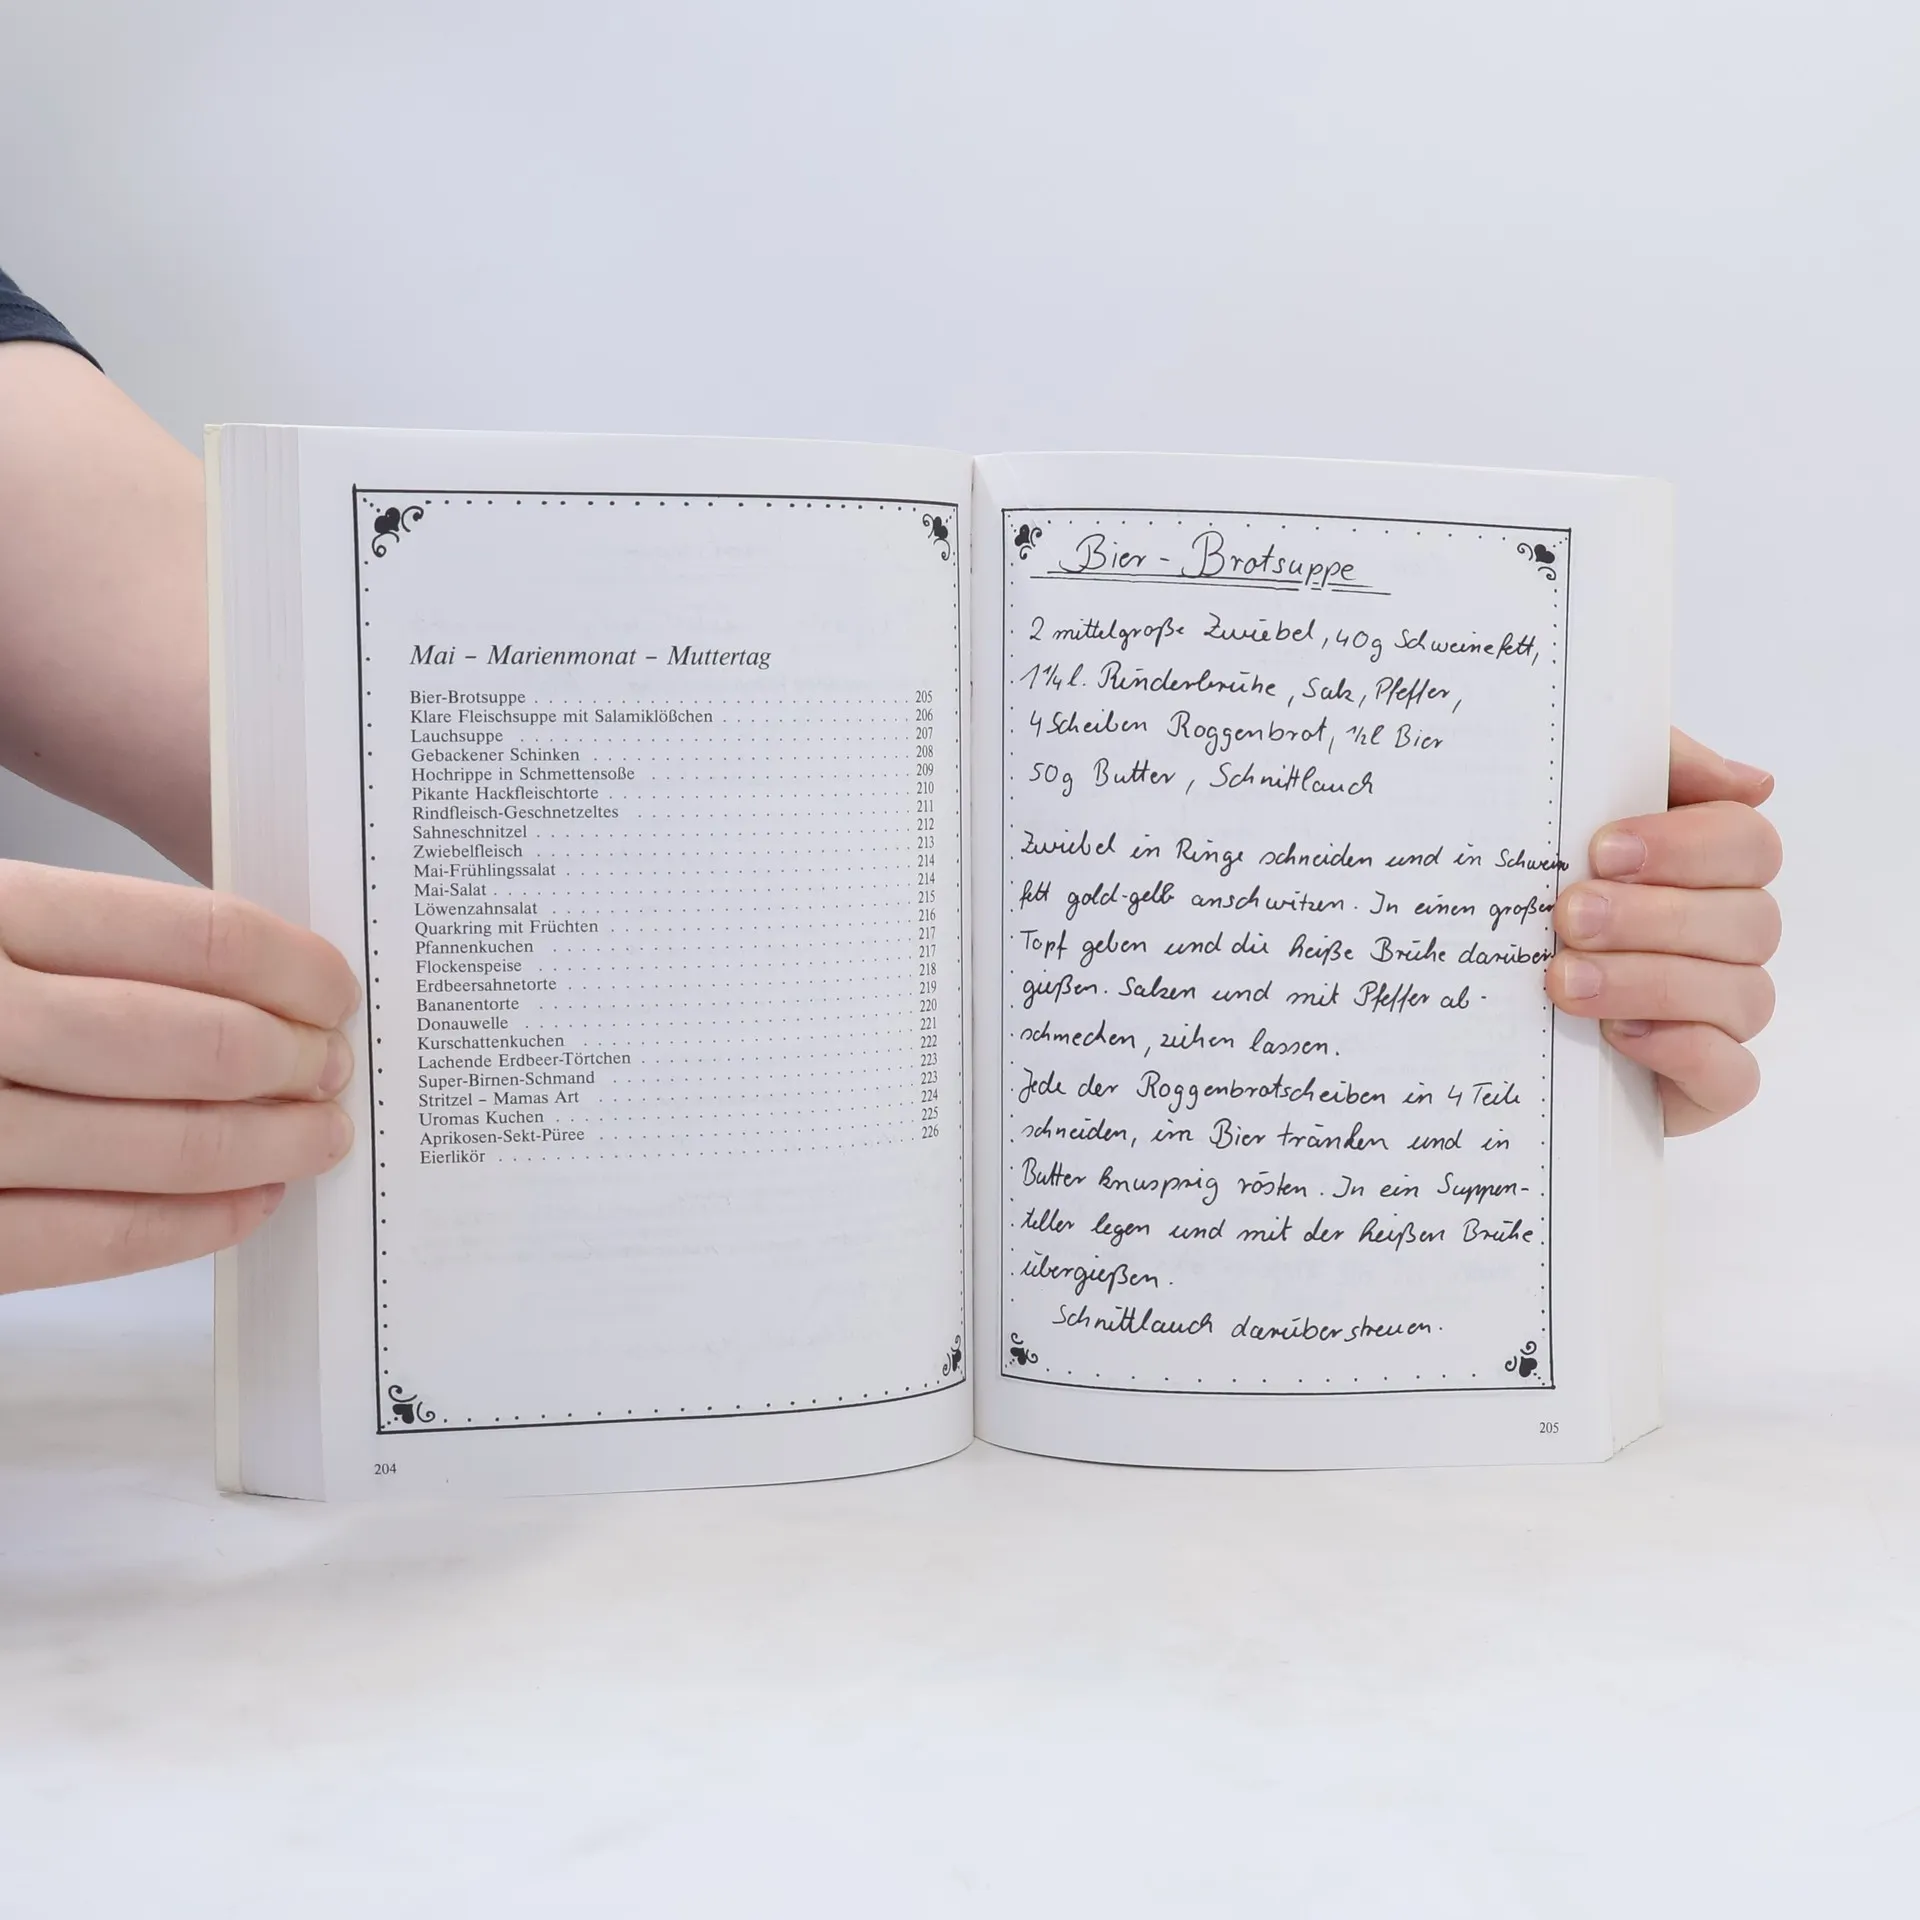 Mai – Marienmonat – Muttertag
Bier-Brotsuppe . . . . . . . . . . 205
Klare Fleischsuppe mit Salamiklößchen . . . . . . . . . . 206
Lauchsuppe . . . . . . . . . . 207
Gebackener Schinken . . . . . . . . . . 208
Hochrippe in Schmettensoße . . . . . . . . . . 209
Pikante Hackfleischtorte . . . . . . . . . . 210
Rindfleisch-Geschnetzeltes . . . . . . . . . . 211
Sahneschnitzel . . . . . . . . . . 212
Zwiebelfleisch . . . . . . . . . . 213
Mai-Frühlingssalat . . . . . . . . . . 214
Mai-Salat . . . . . . . . . . 214
Löwenzahnsalat . . . . . . . . . . 215
Quarkring mit Früchten . . . . . . . . . . 216
Pfannenkuchen . . . . . . . . . . 217
Flockenspeise . . . . . . . . . . 217
Erdbeersahnetorte . . . . . . . . . . 218
Bananentorte . . . . . . . . . . 219
Donauwelle . . . . . . . . . . 220
Kurschattenkuchen . . . . . . . . . . 221
Lachende Erdbeer-Törtchen . . . . . . . . . . 222
Super-Birnen-Schmand . . . . . . . . . . 223
Stritzel – Mamas Art . . . . . . . . . . 223
Uromas Kuchen . . . . . . . . . . 224
Aprikosen-Sekt-Püree . . . . . . . . . . 225
Eierlikör . . . . . . . . . . 226
204
Bier - Brotsuppe
2 mittelgroße Zwiebel, 40g Schweinefett,
1 1/4 l. Rinderbrühe, Salz, Pfeffer,
4 Scheiben Roggenbrot, 1/2 l Bier
50g Butter, Schnittlauch
Zwiebel in Ringe schneiden und in Schwein
fett gold-gelb anschwitzen. In einen großen
Topf geben und die heiße Brühe darüber
gießen. Salzen und mit Pfeffer ab-
schmecken, ziehen lassen.
Jede der Roggenbrotscheiben in 4 Teile
schneiden, im Bier tränken und in
Butter knusprig rösten. In ein Suppen-
teller legen und mit der heißen Brühe
übergießen.
Schnittlauch darüber streuen.
205